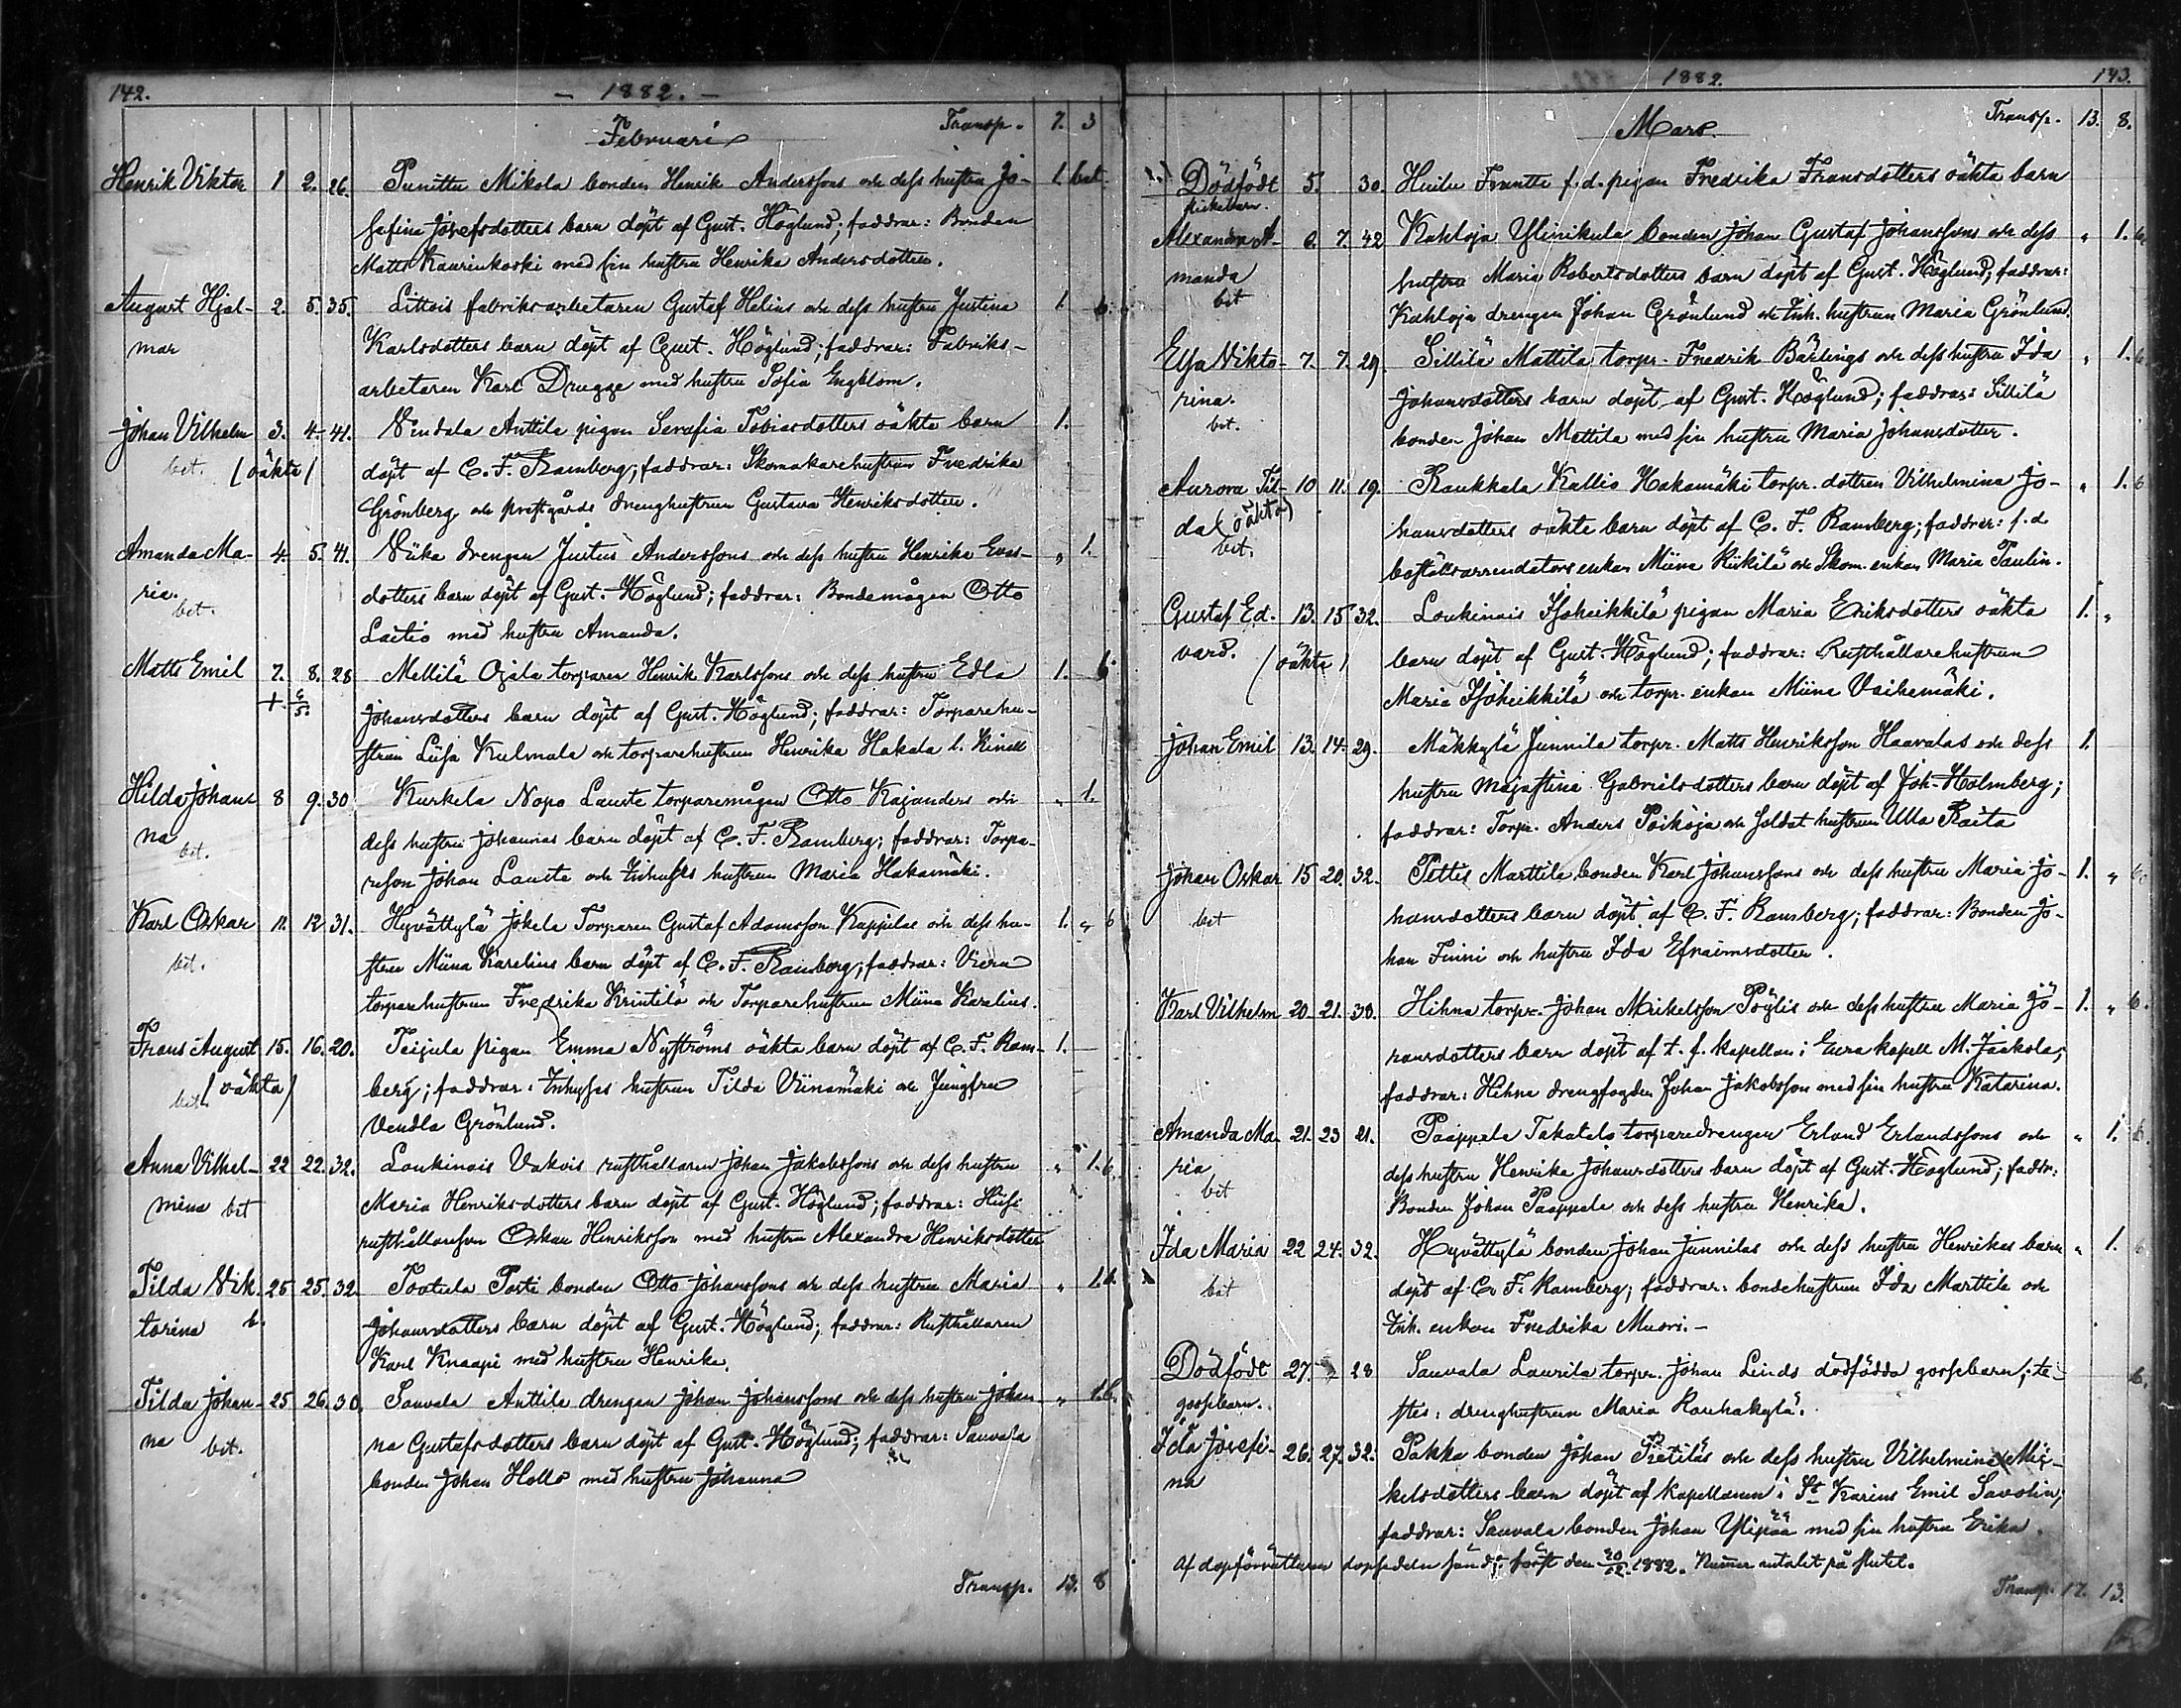 142.
- 1882. -
Februari Transp. 7. 3
Henrik Viktor 1 2. 26. Punittu Mikola bonden Henrik Anderssons och dess hustru Jo- 1. bet
sefina Josefsdotters barn döpt af Gust. Höglund; faddrar: Bonden
Matts Kaurinkoski med sin hustru Henrika Andersdotter.
August Hjal- 2. 5. 35. Littois fabriksarbetaren Gustaf Helins och dess hustru Justina 1. b.
mar Karlsdotters barn döpt af Gust. Höglund; faddrar: Fabriks-
arbetaren Karl Drugge med hustru Sofia Engblom.
Johan Vilhelm 3. 4. 41. Nindala Anttila pigan Serafia Tobiasdotters oäkta barn 1.
bet. (oäkta) döpt af C. F. Ramberg; faddrar: Skomakarehustrun Fredrika
Grönberg och prestgårds drenghustrun Gustava Henriksdotter.
Amanda Ma- 4. 5. 41. drengen Justus Anderssons och dess hustru Henrika Evas- „ 1.
ria. bet. dotters barn döpt af Gust. Höglund; faddrar: Bondemågen Otto
Laitio med hustru Amanda.
Matts Emil 7. 8. 28 Mellilä Ojala torparen Henrik Karlssons och dess hustru Edla 1. b
+ 6/5. Johansdotters barn döpt af Gust. Höglund; faddrar: Torparehu-
strun Lisa Kulmala och torparehustrun Henrika Hakala l.
Hilda Johan- 8 9. 30 Kurkela Nopo Lauste torparemågen Otto Kajanders och „ 1.
na bet. dess hustru Johannas barn döpt af C. F. Ramberg; faddrar: Torpa-
reson Johan Lauste och Inhyses hustrun Maria Hakamäki.
Karl Oskar 11. 12 31. Hyvättylä Jokela Torparen Gustaf Adamsson Kappilas och dess hu- 1. „ b
bet. stru Miina Karelius barn döpt af C. F. Ramberg; faddrar: Vieru
torparehustrun Fredrika Krintilä och Torparehustrun Miina Karelius.
Frans August 15. 16. 20. Teijula pigan Emma Nyströms oäkta barn döpt af C. F. Ram- 1.
bet. (oäkta) berg; faddrar: Inhyses hustrun Tilda Viinamäki och Jungfru
Vendla Grönlund.
Anna Vilhel- 22 22. 32. Loukinais Vakvis rusthållaren Johan Jakobssons och dess hustru „ 1. b
mina bet Maria Henriksdotters barn döpt af Gust. Höglund; faddrar: Hiisi
rusthållareson Oskar Henriksson med hustru Alexandra Henriksdotter
Tilda Vik- 25 25. 32. Tootula Posti bonden Otto Johanssons och dess hustru Maria „ 1. b.
torina b. Johansdotters barn döpt af Gust. Höglund; faddrar: Rusthållaren
Karl Knaapi med hustru Henrika.
Tilda Johan- 25 26. 30. Sauvala Anttila drengen Johan Johanssons och dess hustru Johan- „ 1. b.
na bet. na Gustafsdotters barn döpt af Gust. Höglund; faddrar: Sauvala
bonden Johan Hollo med hustru Johanna
Transp. 13. 8
1882. 143.
Mars. Transp. 13. 8.
Dödfödt 5. 30. f. d. pigan Fredrika Fransdotters oäkta barn
flickebarn.
Alexandra A- 6. 7. 42 Kahloja Ylinikula bonden Johan Gustaf Johanssons och dess „ 1. b
manda hustru Maria Robertsdotters barn döpt af Gust. Höglund; faddrar:
bet Kahloja drengen Johan Grönlund och Inh. hustrun Maria Grönlund.
Elsa Vikto- 7. 7. 29. Sillilä Mattila torpr. Fredrik Bärlings och dess hustru Ida „ 1. b
rina. Johansdotters barn döpt af Gust. Höglund; faddrar: Sillilä
bet. bonden Johan Mattila med sin hustru Maria Johansdotter.
Aurora Til- 10 11. 19. Raukkala Kallio Hakamäki torpr. dottren Vilhelmina Jo- „ 1. b
da (oäkta) hansdotters oäkta barn döpt af C. F. Ramberg; faddrar: f. d.
bet. boställsarrendators enkan Miina Kiikilä och Skom. enkan Maria Paulin.
Gustaf Ed- 13. 15 32. Loukinais Isoheikkilä pigan Maria Eriksdotters oäkta 1. „
vard. (oäkta) barn döpt af Gust. Höglund; faddrar: Rusthållarehustrun
Maria Isoheikkilä och torpr. enkan Miina Vaihemäki.
Johan Emil 13. 14. 29. Mäkkylä Junnila torpr. Matts Henriksson Haavalas och dess 1.
hustru Majastina Gabrielsdotters barn döpt af Joh. Holmberg;
faddrar: Torpr. Anders Poikoja och Soldat hustrun Ulla Raita
Johan Oskar 15 20. 32. Pettis Marttila bonden Karl Johanssons och dess hustru Maria Jo- 1. „ b
bet hansdotters barn döpt af C. F. Ramberg; faddrar: Bonden Jo-
han Finni och hustru Ida Efraimsdotter.
Karl Vilhelm 20. 21. 30. Hihna torpr. Johan Mikelsson Pöylis och dess hustru Maria Jö- 1. „ b.
ransdotters barn döpt af t. f. kapellan i Eura kapell M. Jaakola;
faddrar: Hihna drengfogden Johan Jakobsson med sin hustru Katarina.
Amanda Ma- 21. 23 21. Paappala Takatalo torparedrengen Erland Erlandssons och „ 1. b.
ria dess hustru Henrika Johansdotters barn döpt af Gust. Höglund; faddr:
bet Bonden Johan Paappala och dess hustru Henrika.
Ida Maria 22 24. 32. Hyvättylä bonden Johan Junnilas och dess hustru Henrikas barn „ 1. b
bet döpt af C. F. Ramberg; faddrar: bondehustrun Ida Marttila och
Inh. enkan Fredrika Muori. -
Dödfödt 27. „ 28 Sauvala Laurila torpr. Johan Linds dödfödda gossebarn; te- b.
gossebarn. stes: drenghustrun Maria Rauhakylä.
Ida Josefi- 26. 27. 32. Pakka bonden Johan Pietiläs och dess hustru Vilhelmina Mi-
na kelsdotters barn döpt af kapellanen i St Karins Emil Savolin;
faddrar: Sauvala bonden Johan Ylipää med sin hustru Erika.
Af dopförrättaren dopsedeln sänd först den 20/12. 1882. Numer antalet på slutet.
Transp. 17. 13.